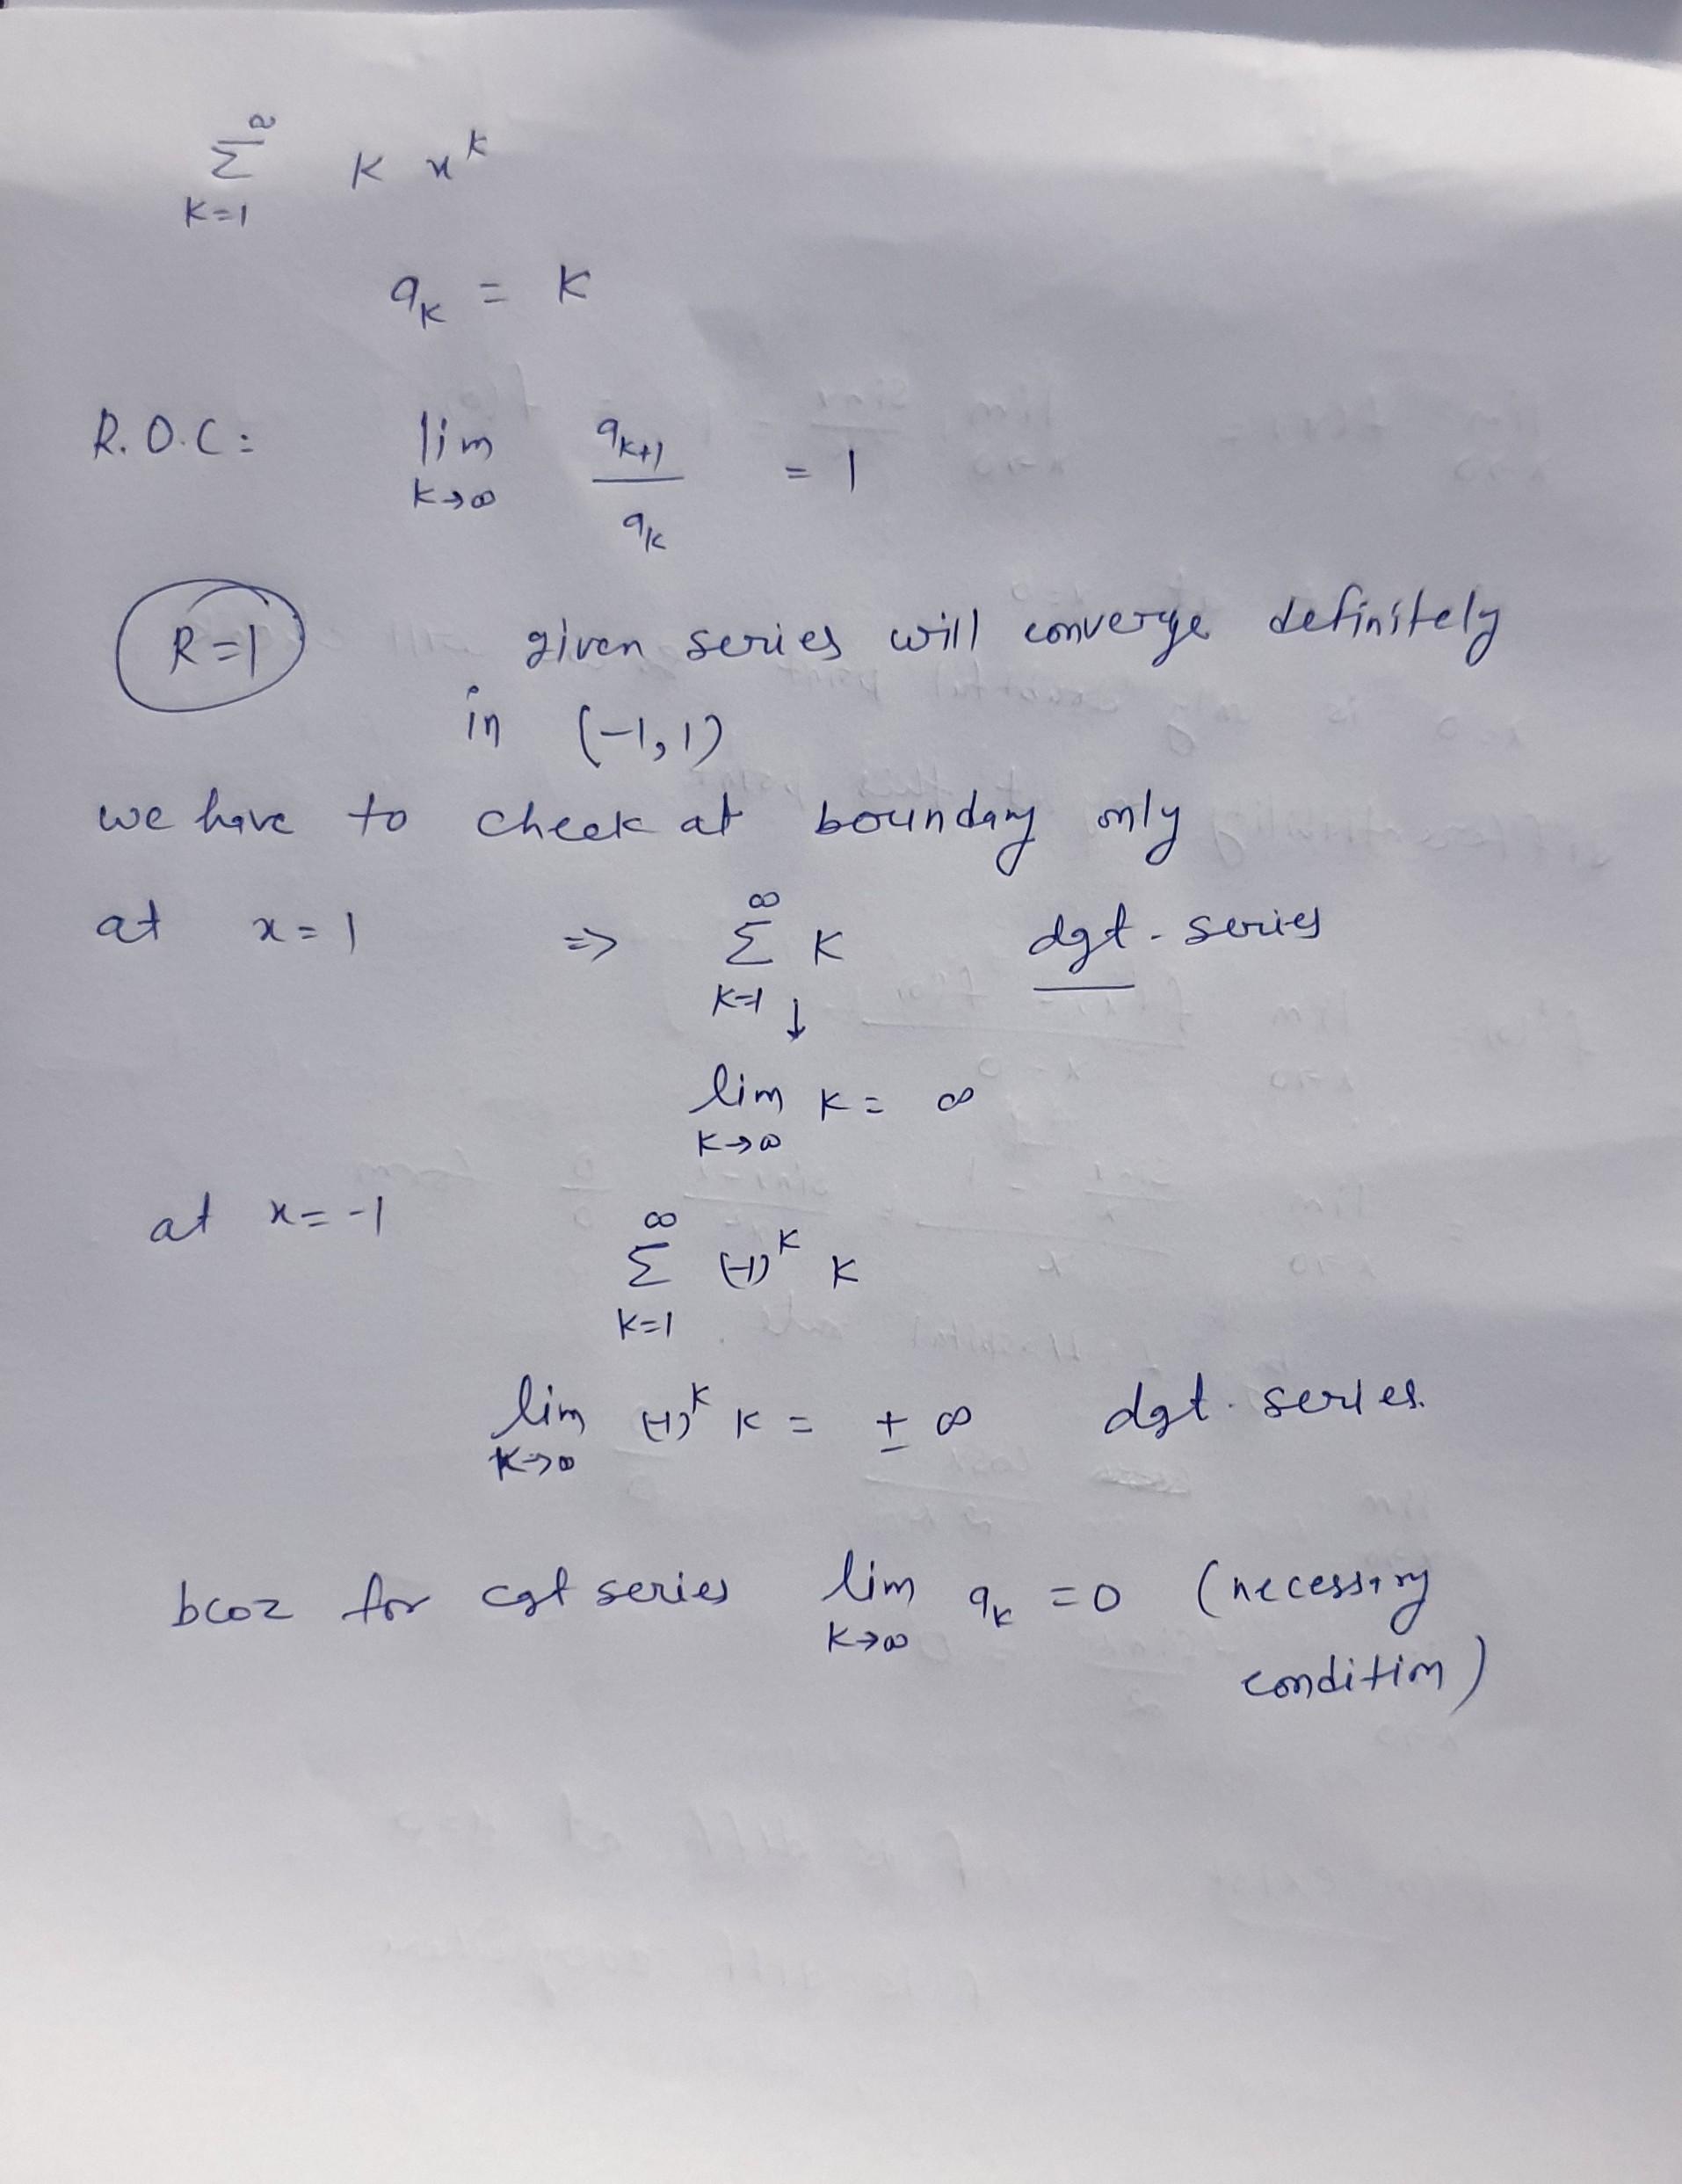 ∞
Σ K x^k
K=1
a_K = K
R.O.C: lim a_{K+1} / a_K = 1
K→∞
R=1 given series will converge definitely
in (-1,1)
we have to check at boundary only
at x=1 ⇒ ∞ Σ K dgt. series
K=1 ↓
lim K = ∞
K→∞
at x=-1 ∞ Σ (-1)^K K
K=1
lim (-1)^K K = ± ∞ dgt. series.
K→∞
bcoz for cgt series lim a_K = 0 (necessary
K→∞
condition)